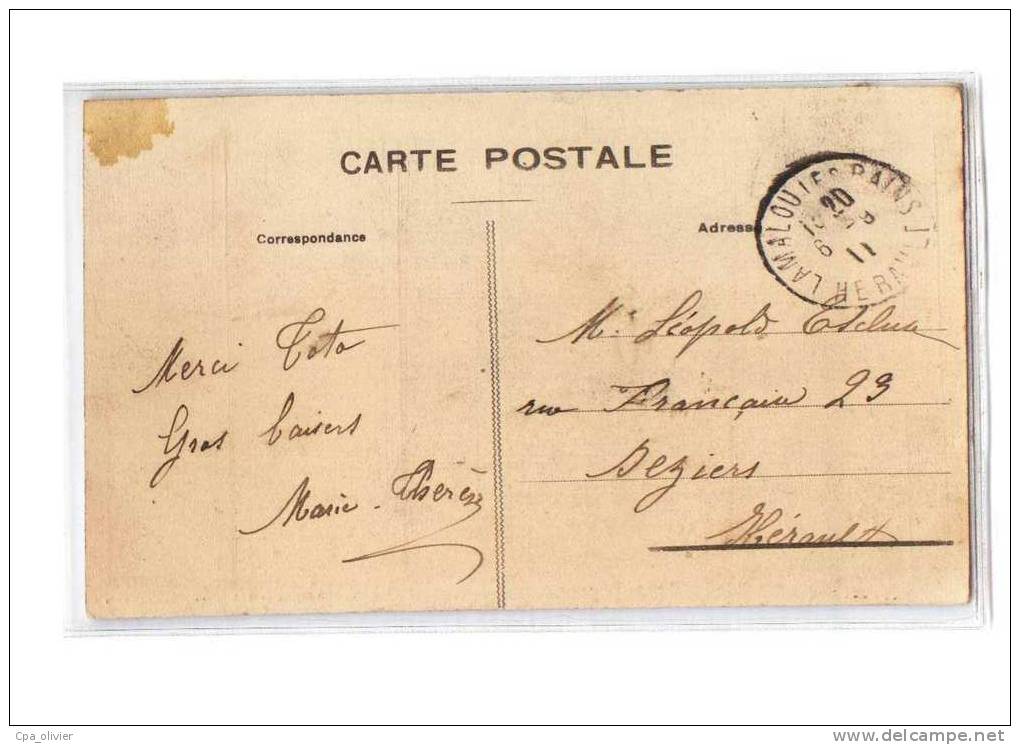 CARTE POSTALE
Correspondance
Adresse
LAMALOU LES BAINS
HERAULT
Merci Toto
Gros baisers
Marie-Thérèse
Mr Léopold
rue Française 23
Beziers
Hérault
Cpa_olivier
www.delcampe.net